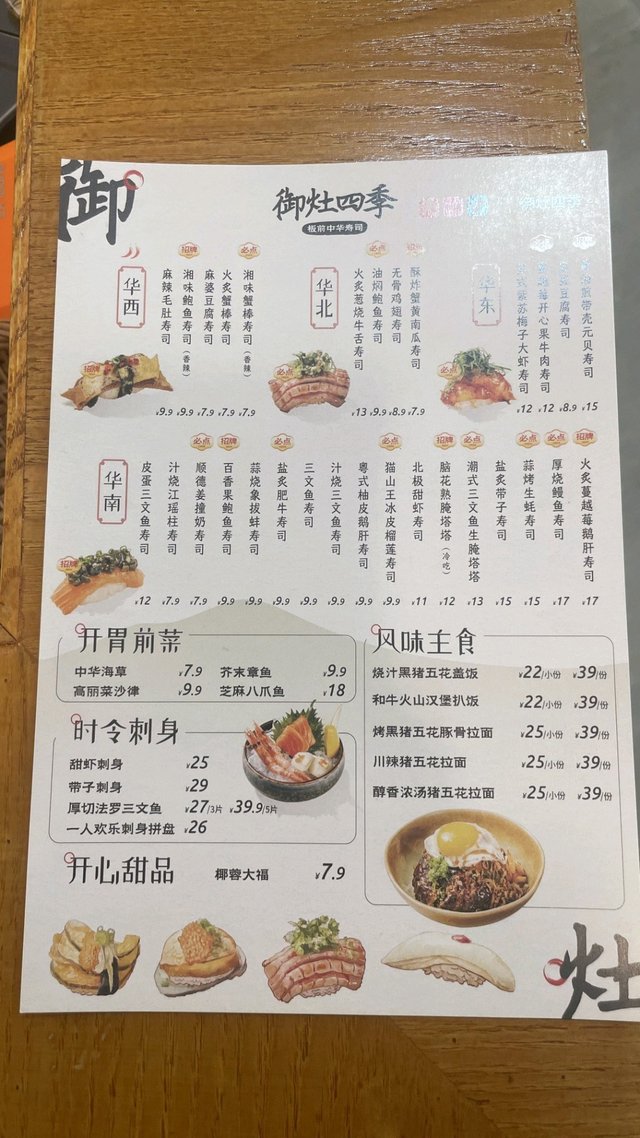 御
御灶四季
板前中华寿司
华西
招牌
必点
麻辣毛肚寿司
湘味鲍鱼寿司（香辣）
麻婆豆腐寿司
火炙蟹棒寿司
湘味蟹棒寿司（香辣）
招牌
¥9.9 ¥9.9 ¥7.9 ¥7.9 ¥7.9
华北
必点
必点
火炙葱烧牛舌寿司
油焖鲍鱼寿司
无骨鸡翅寿司
酥炸蟹黄南瓜寿司
必点
¥13 ¥9.9 ¥8.9 ¥7.9
华东
紫苏梅子大虾寿司
开心果牛肉寿司
豆腐寿司
带壳元贝寿司
必点
¥12 ¥12 ¥8.9 ¥15
华南
必点 招牌 必点 必点 招牌 必点 必点 必点 招牌
皮蛋三文鱼寿司
汁烧江瑶柱寿司
顺德姜撞奶寿司
百香果鲍鱼寿司
蒜烧象拔蚌寿司
盐炙肥牛寿司
三文鱼寿司
汁烧三文鱼寿司
粤式柚皮鹅肝寿司
猫山王冰皮榴莲寿司
北极甜虾寿司
脑花熟腌塔塔（冷吃）
潮式三文鱼生腌塔塔
盐炙带子寿司
蒜烤生蚝寿司
厚烧鳗鱼寿司
火炙蔓越莓鹅肝寿司
招牌
¥12 ¥7.9 ¥7.9 ¥9.9 ¥9.9 ¥9.9 ¥9.9 ¥9.9 ¥9.9 ¥9.9 ¥11 ¥12 ¥13 ¥15 ¥15 ¥17 ¥17
开胃前菜
中华海草 ¥7.9 芥末章鱼 ¥9.9
高丽菜沙律 ¥9.9 芝麻八爪鱼 ¥18
时令刺身
甜虾刺身 ¥25
带子刺身 ¥29
厚切法罗三文鱼 ¥27/3片 ¥39.9/5片
一人欢乐刺身拼盘 ¥26
开心甜品
椰蓉大福 ¥7.9
风味主食
烧汁黑猪五花盖饭 ¥22/小份 ¥39/份
和牛火山汉堡扒饭 ¥22/小份 ¥39/份
烤黑猪五花豚骨拉面 ¥25/小份 ¥39/份
川辣猪五花拉面 ¥25/小份 ¥39/份
醇香浓汤猪五花拉面 ¥25/小份 ¥39/份
灶